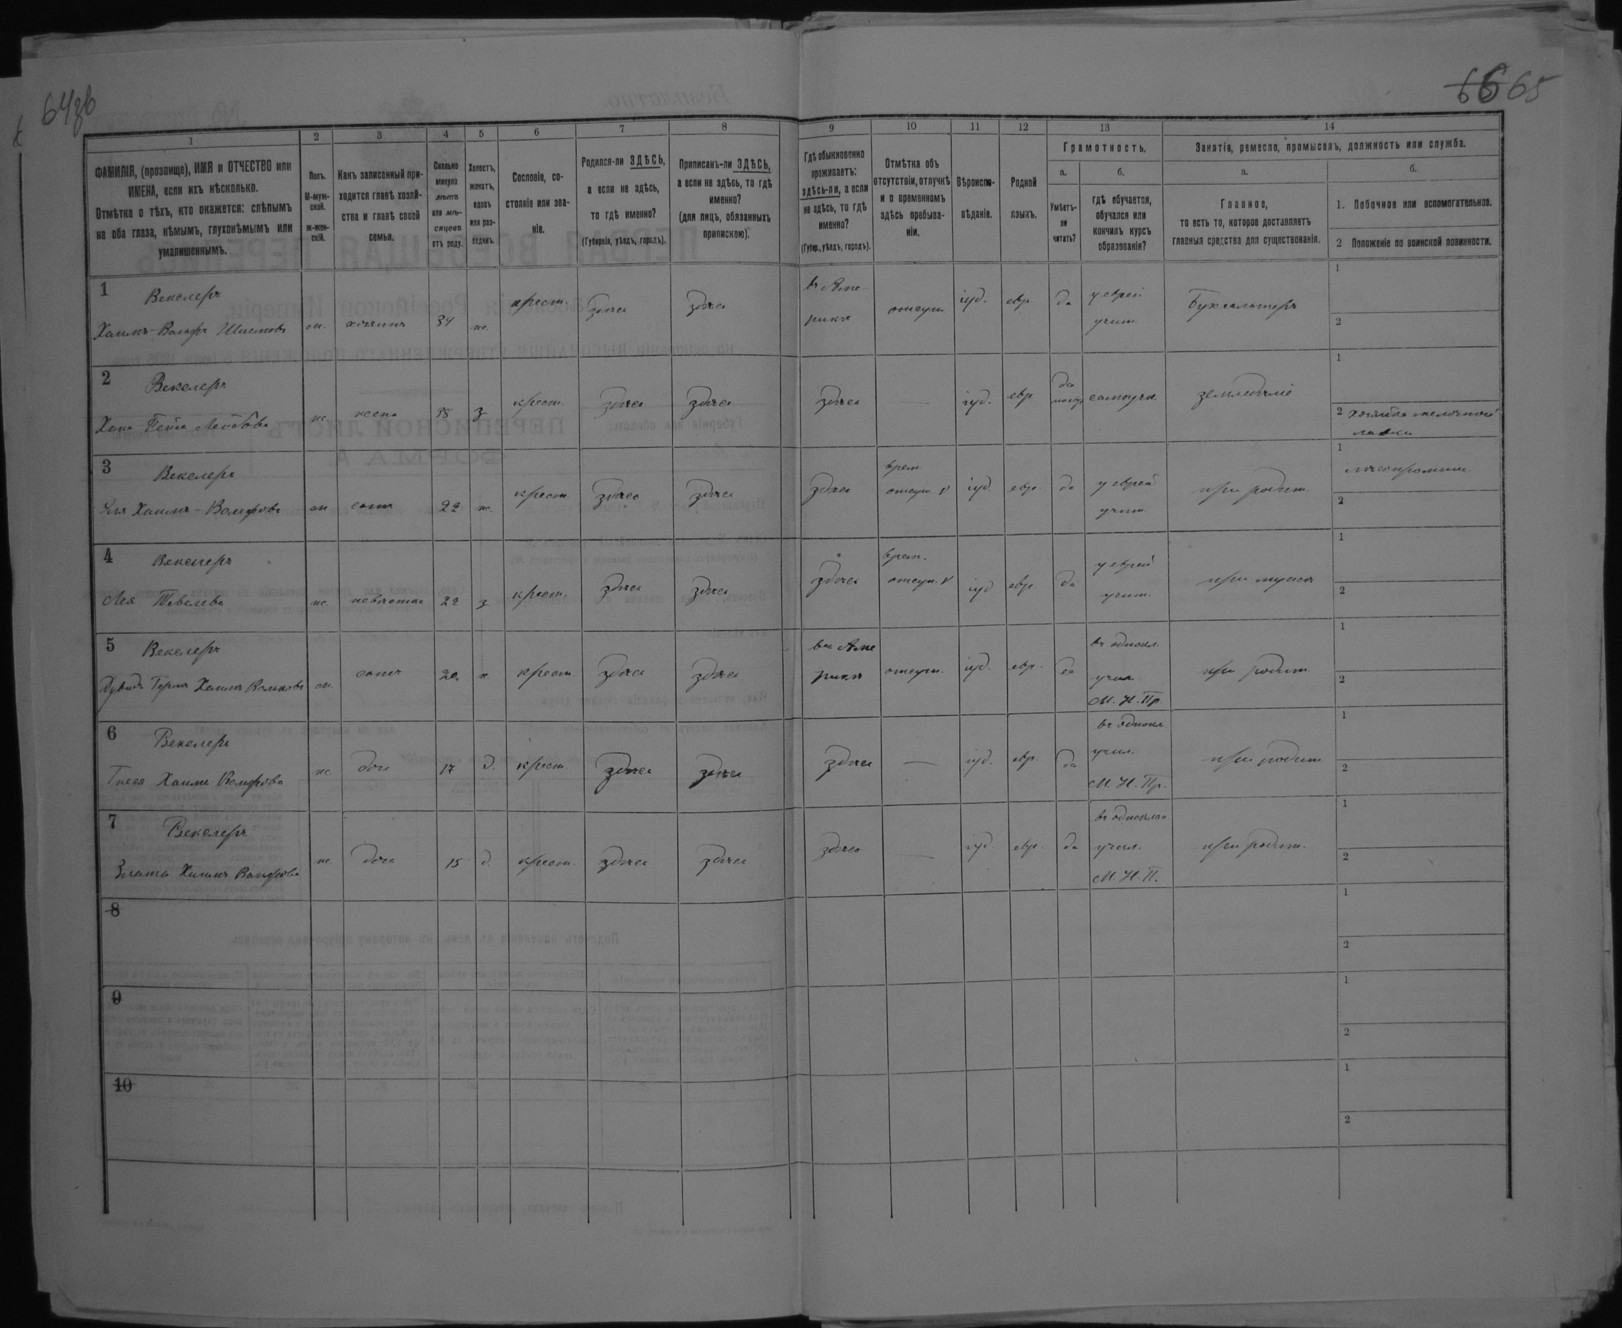 64об
66 65
1 2 3 4 5 6 7 8 9 10 11 12 13 14
ФАМИЛІЯ, (прозвище), ИМЯ и ОТЧЕСТВО или
ИМЕНА, если ихъ нѣсколько.
Отмѣтка о тѣхъ, кто окажется: слѣпымъ
на оба глаза, нѣмымъ, глухонѣмымъ или
умалишеннымъ.
Полъ.
М-муж-
ской.
ж-жен-
скій.
Какъ записанный при-
ходится главѣ хозяй-
ства и главѣ своей
семьи.
Сколько
минуло
лѣтъ
или мѣ-
сяцевъ
отъ роду.
Холостъ,
женатъ,
вдовъ
или раз-
веденъ.
Сословіе, со-
стояніе или зва-
ніе.
Родился-ли ЗДѢСЬ,
а если не здѣсь,
то гдѣ именно?
(Губернія, уѣздъ, городъ).
Приписанъ-ли ЗДѢСЬ,
а если не здѣсь, то гдѣ
именно?
(для лицъ, обязанныхъ
припискою).
Гдѣ обыкновенно
проживаетъ:
здѣсь-ли, а если
не здѣсь, то гдѣ
именно?
(Губер., уѣздъ, городъ).
Отмѣтка объ
отсутствіи, отлучкѣ
и о временномъ
здѣсь пребыва-
ніи.
Вѣроиспо-
вѣданіе.
Родной
языкъ.
Грамотность.
а.
Умѣетъ-
ли
читать?
б.
гдѣ обучается,
обучался или
кончилъ курсъ
образованія?
Занятія, ремесло, промыселъ, должность или служба.
а.
Главное,
то есть то, которое доставляетъ
главныя средства для существованія.
б.
1. Побочное или вспомогательное.
2 Положеніе по воинской повинности.
1 Векслеръ крест. въ Аме- іуд. евр. да у еврей Бухгалтеръ 1
Хаимъ-Вольфъ м. хозяинъ ж. здѣсь здѣсь рикѣ отсут. учит. 2
2 Векслеръ крест. здѣсь здѣсь здѣсь — іуд. евр да самоучк. земледѣліе 1
Хана Лейбова ж. жена з 2 хозяйка мелочной
лавки
3 Векслеръ крест. здѣсь здѣсь здѣсь врем. іуд. евр. да у еврей при родит. 1
Хаимъ-Вольфовъ м сынъ 22 ж. отсут. учит. 2
4 Векслеръ крест. здѣсь здѣсь здѣсь врем. іуд евр. да у еврей при мужѣ 1
Лея Тевелева ж. невѣстка 22 з отсут. учит. 2
5 Векслеръ сынъ 20 х. крест. здѣсь здѣсь въ Аме отсут. іуд. евр. да въ однокл. при родит. 1
м. рикѣ учил. 2
М. Н. Пр
6 Векслеръ ж. дочь 17 д. крест здѣсь здѣсь здѣсь — іуд. евр. да въ однокл. при родит 1
Хаимъ Вольфова учил. 2
М. Н. Пр.
7 Векслеръ ж. дочь 15 д. крест. здѣсь здѣсь здѣсь — іуд евр. да въ одноклас при родит. 1
Злата Хаимъ Вольфова учил. 2
М. Н. П.
8 1
2
9 1
2
10 1
2